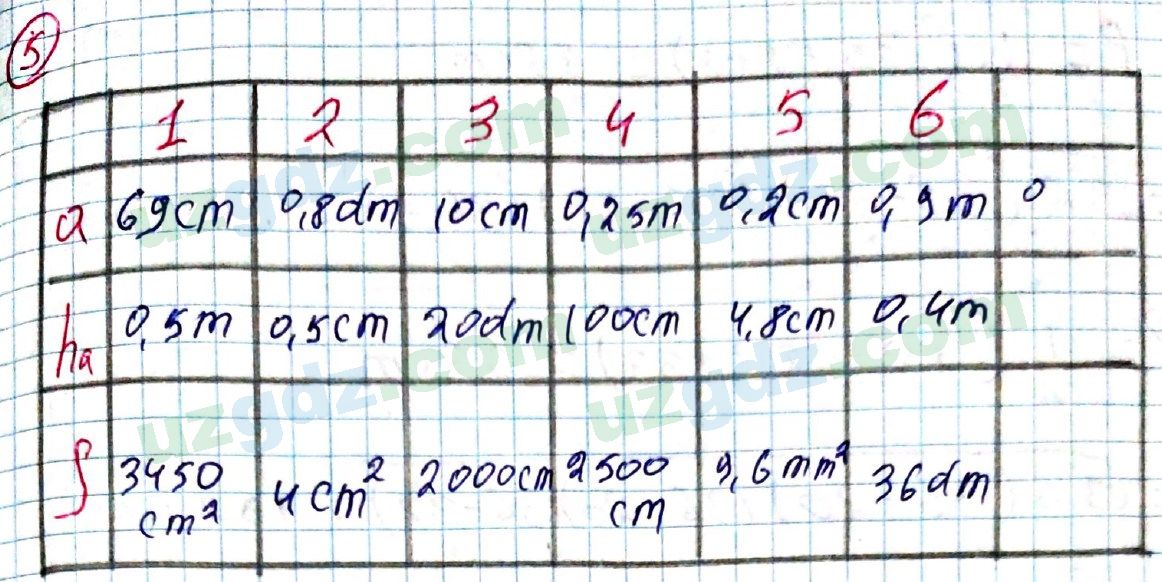 5
1 2 3 4 5 6
a 69cm 0,8dm 10cm 0,25m 0,2cm 0,9m 0
ha 0,5m 0,5cm 20dm 100cm 4,8cm 0,4m
S 3450 cm² 4cm² 2000cm 2500 cm 9,6mm² 36dm
uzgdz.com
uzgdz.com
uzgdz.com
uzgdz.com